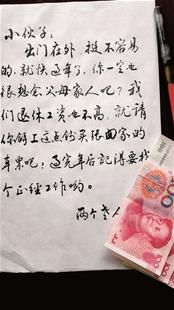 小伙子：
出门在外，挺不容易
的，就快过年了，你一定也
很想念父母家人吧？我
们退休工资也不高，就请
你留上这点钱买张回家的
车票吧！过完年后记得要找
个正经工作哟。
两个老人
100
100